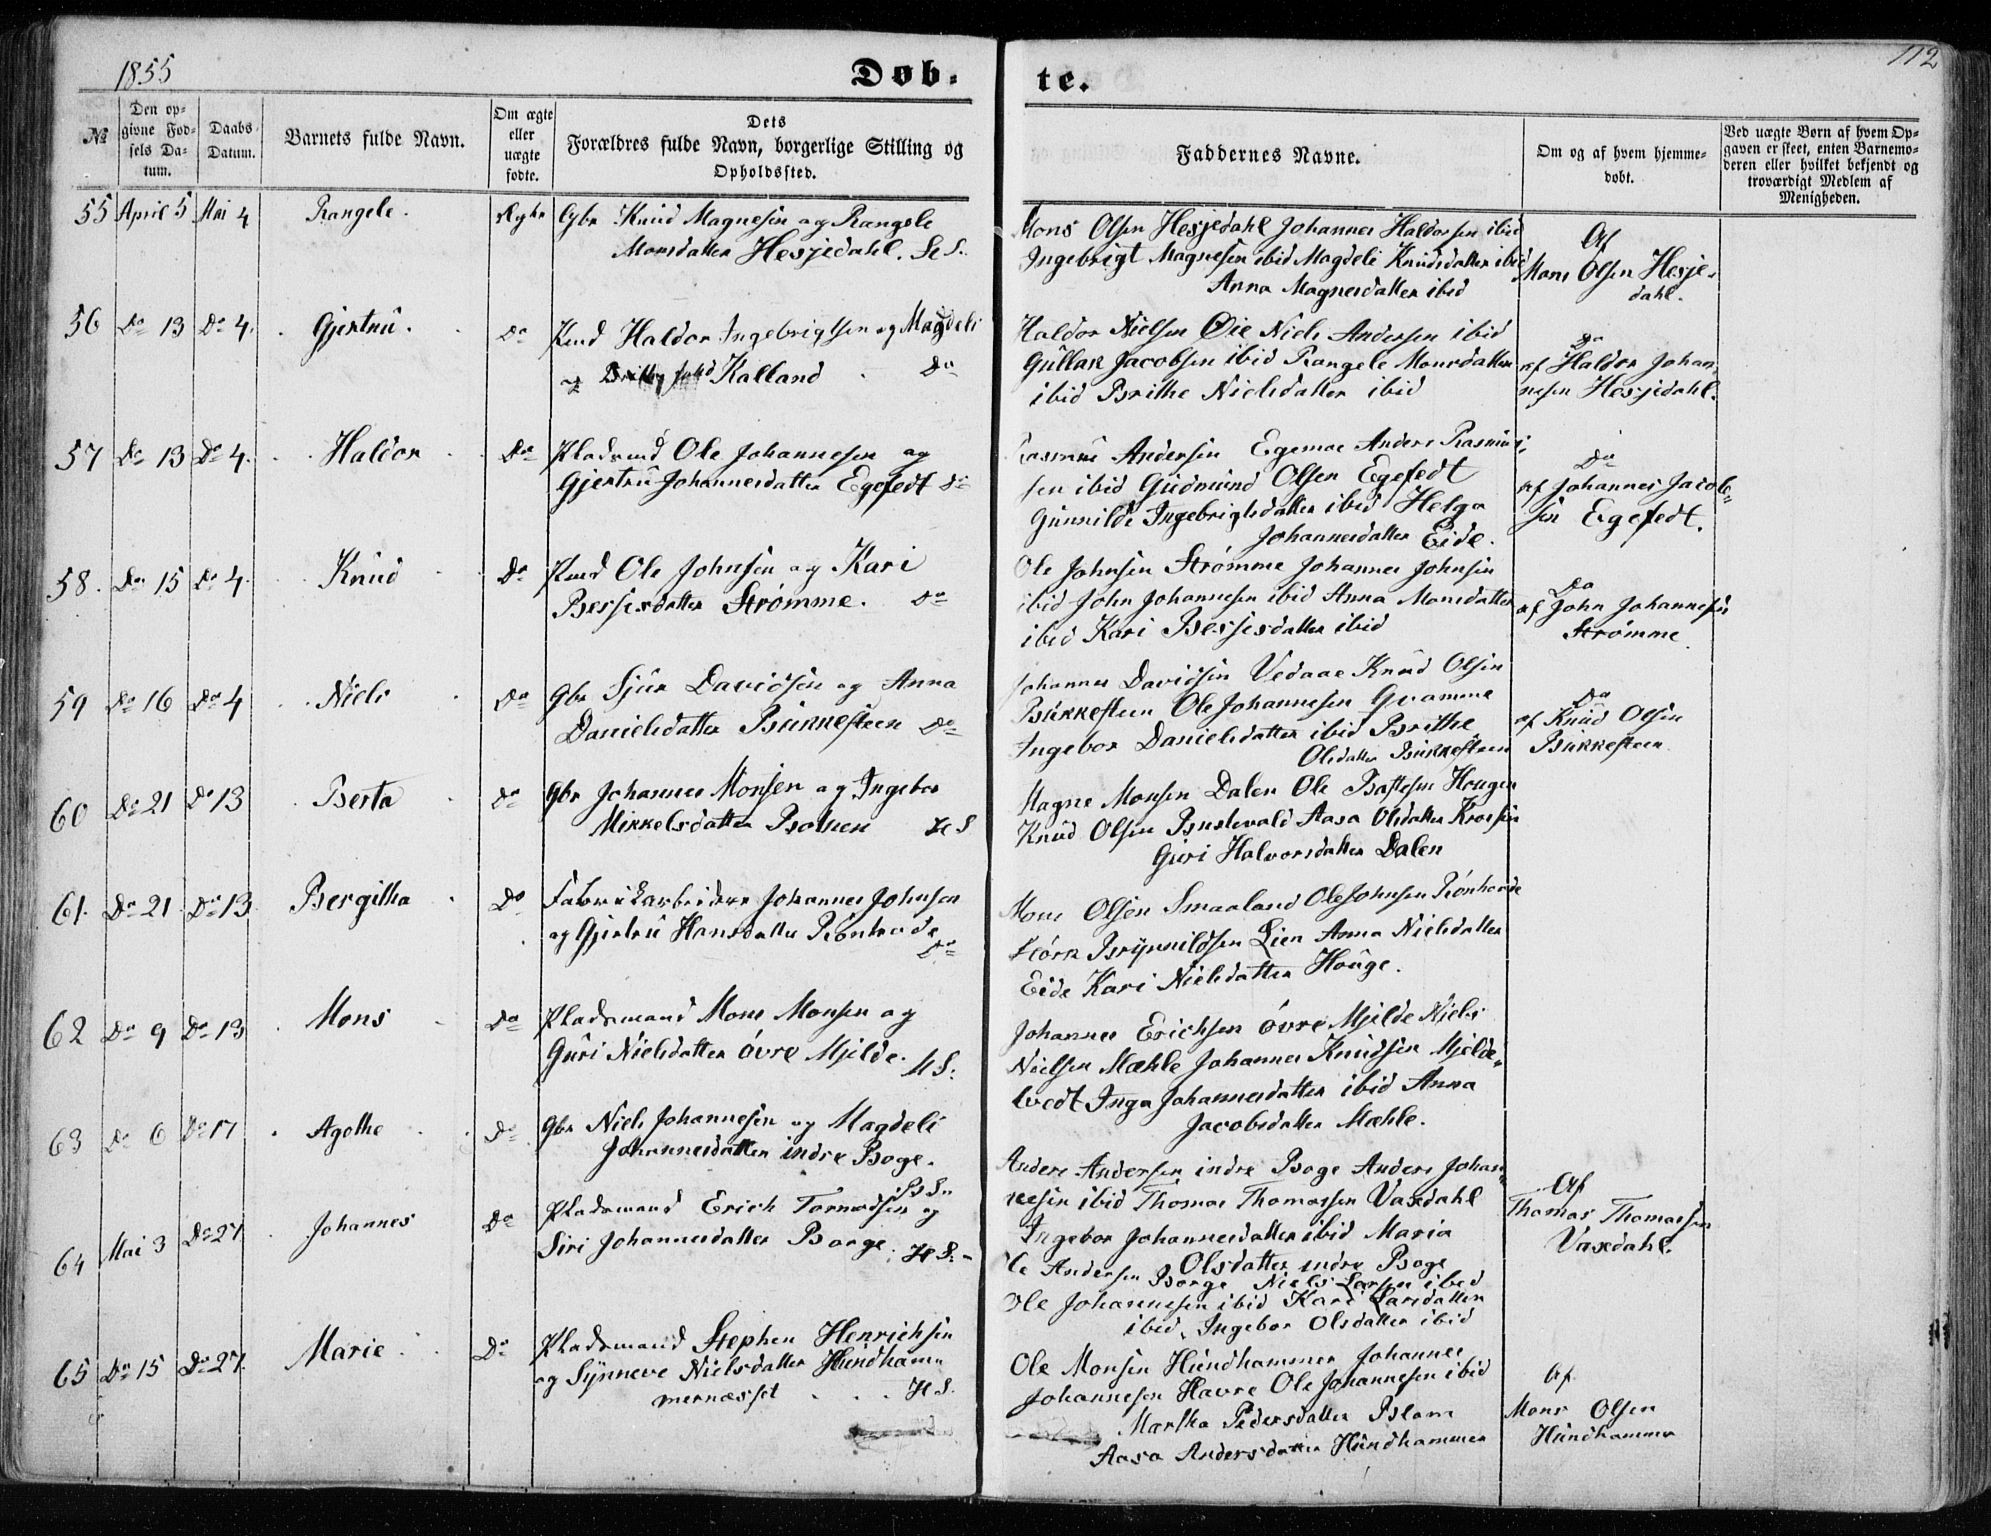 1855
Døb-
te.
112
№
Den op-
givne Fød-
sels Da-
tum.
Daabs-
Datum.
Barnets fulde Navn.
Om ægte
eller
uægte
fødte.
Dets
Forældres fulde Navn, borgerlige Stilling og
Opholdssted.
Faddernes Navne.
Om og af hvem hjemme-
døbt.
Ved uægte Børn af hvem Op-
gaven er skeet, enten Barnemo-
deren eller hvilket bekjendt og
troværdigt Medlem af
Menigheden.
55 April 5 Mai 4 Rangele. Ægte Gbr Knud Magnesen og Rangele
Monsdatter Hesjedahl.
Mons Olsen Hesjedahl Johannes Haldorsen ibid
Ingebrigt Magnesen ibid Magdeli Knudsdatter ibid
Anna Magnesdatter ibid
Af
Mons Olsen Hesje-
dahl.
56 Do 13 Do 4. Gjertru. Do Haldor Ingebrigtsen og Magdeli
Kalland Do
Haldor Nielsen Øie Niels Andersen ibid
Gullak Jacobsen ibid Rangele Monsdatter
ibid Brithe Nielsdatter ibid
Do
af Haldor Johan-
nesen Hesjedahl.
57 Do 13 Do 4. Haldor Do Pladsmd Ole Johannesen og
Gjertru Johannesdatter Egefedt Do
Rasmus Andersen Egemoe Anders Rasmus-
sen ibid Gudmund Olsen Egefedt
Gunnilde Ingebrigtsdatter ibid Helga
Johannesdatter Eide.
Do
af Johannes Jacob-
sen Egefedt.
58. Do 15 Do 4. Knud Do Ole Johnsen og Kari
Bessesdatter Strømme. Do
Ole Johnsen Strømme Johannes Johnsen
ibid John Johannesen ibid Anna Monsdatter
ibid Kari Bessesdatter ibid
Do
af John Johannesen
Strømme
59 Do 16 Do 4 Niels Do Gbr Sjur Davidsen og Anna
Danielsdatter Bukkesteen Do
Johannes Davidsen Vedaae Knud Olsen
Bukkesteen Ole Johannesen Qvamme
Ingebor Danielsdatter ibid Brithe
Olsdatter Bukkesteen
Do
af Knud Olsen
Bukkesteen
60 Do 21 Do 13 Berta Do Gbr Johannes Monsen og Ingebor
Mikkelsdatter Botnen H S
Magne Monsen Dalen Ole Houger
Knud Olsen Aasa Olsdatter
Guri Halvorsdatter Dalen
61. Do 21 Do 13. Bergitha Do Fabrikarbeider Johannes Johnsen
og Gjertru Hansdatter Rønhovde
Do
Mons Olsen Smaaland Ole Johnsen Rønhovde
Brynnildsen Lien Anna Nielsdatter
Eide Kari Nielsdatter Houge.
62 Do 9 Do 13 Mons Do Pladsmand Mons Monsen og
Guri Nielsdatter övre Mjelde. H S.
Johannes Erichsen övre Mjelde Niels
Nielsen Mæhle Johannes Knudsen Mjelde-
tvedt Inga Johannesdatter ibid Anna
Jacobsdatter Mæhle.
63 Do 6 Do 17 Agothe Do Gbr Niels Johannesen og Magdeli
Johannesdatter indre Boge.
Anders Andersen indre Boge Anders Johan-
nesen ibid Thomas Thomassen Vaxdahl
Ingebor Johannesdatter ibid Maria
Olsdatter indre Boge
Af
Thomas Thomassen
Vaxdahl.
64 Mai 3 Do 27. Johannes Do Pladsmand Erich Tormodsen og
Siri Johannesdatter Borge. H S.
Ole Andersen Borge Niels Larsen ibid
Ole Johannesen ibid Kari Larsdatter
ibid, Ingebor Olsdatter ibid
65 Do 15 Do 27. Marie Do Pladsmand Stephen Henrichsen
og Synneve Nielsdatter Hundham-
mernæsset H S.
Ole Monsen Hundhammer Johannes
Johannesen Havre Ole Johannesen ibid
Martha Pedersdatter Blom
Aasa Andersdatter Hundhammer
Af
Mons Olsen
Hundhammer